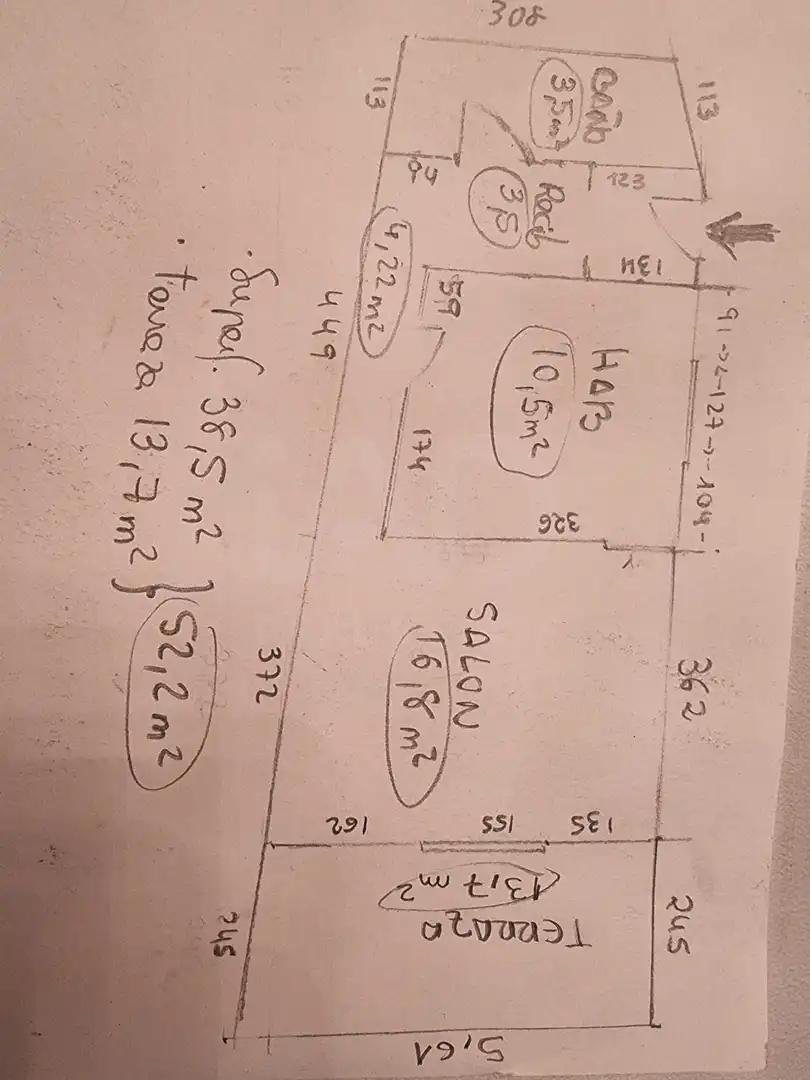 308
113
113
BAÑO
3,5 m²
123
Recib
3,5
134
4,22 m²
59
449
HAB
10,5 m²
91 → ← 127 → - 104 -
174
326
SALON
16,8 m²
372
362
162
155
135
13,7 m²
Terraza
245
245
5,61
· Superf. 38,5 m²
· terraza 13,7 m² } 52,2 m²